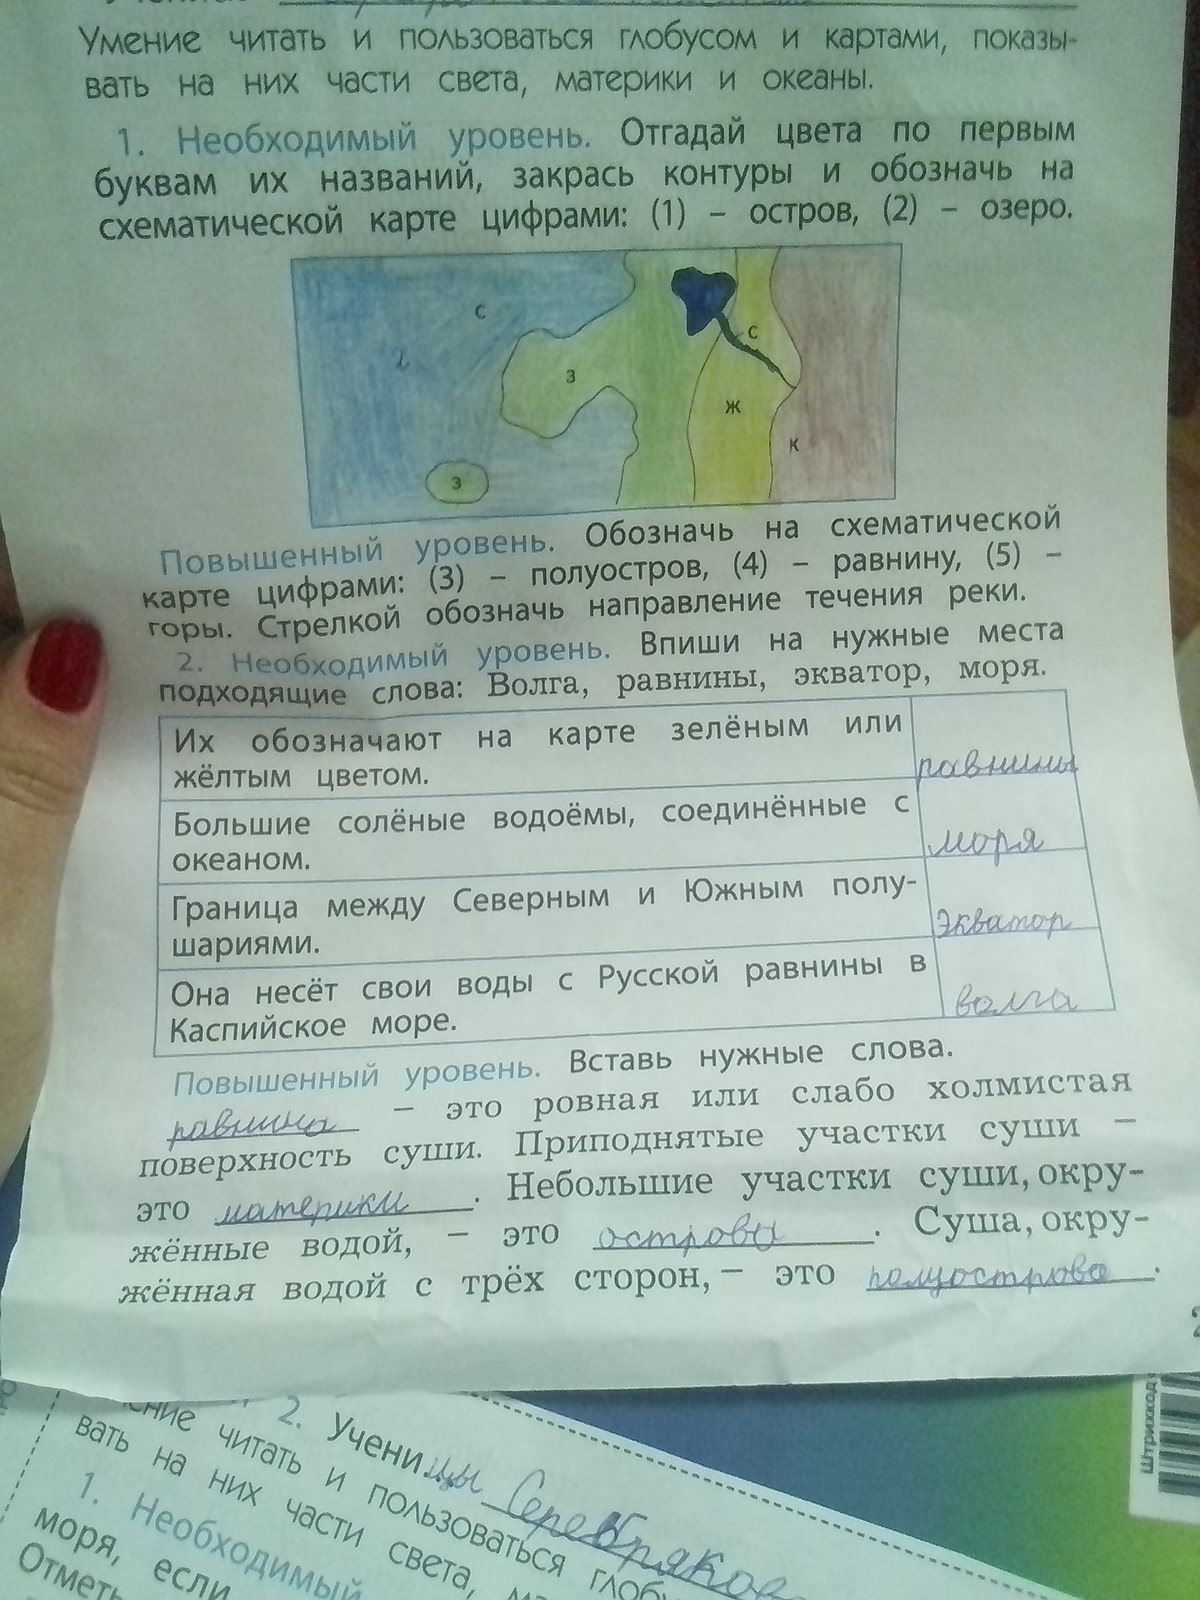 Умение читать и пользоваться глобусом и картами, показы-
вать на них части света, материки и океаны.
1. Необходимый уровень. Отгадай цвета по первым
буквам их названий, закрась контуры и обозначь на
схематической карте цифрами: (1) – остров, (2) – озеро.
С
2
С
З
Ж
К
З
Повышенный уровень. Обозначь на схематической
карте цифрами: (3) – полуостров, (4) – равнину, (5) –
горы. Стрелкой обозначь направление течения реки.
2. Необходимый уровень. Впиши на нужные места
подходящие слова: Волга, равнины, экватор, моря.
Их обозначают на карте зелёным или
жёлтым цветом. равнины
Большие солёные водоёмы, соединённые с
океаном. моря
Граница между Северным и Южным полу-
шариями. экватор
Она несёт свои воды с Русской равнины в
Каспийское море. волга
Повышенный уровень. Вставь нужные слова.
равнина – это ровная или слабо холмистая
поверхность суши. Приподнятые участки суши –
это материки. Небольшие участки суши, окру-
жённые водой, – это острова. Суша, окру-
жённая водой с трёх сторон, – это полуострова.
2. Учени цы
ние читать и пользоваться глобу
вать на них части света,
1. Необходимый
моря, если
Отметь
Штрихкод